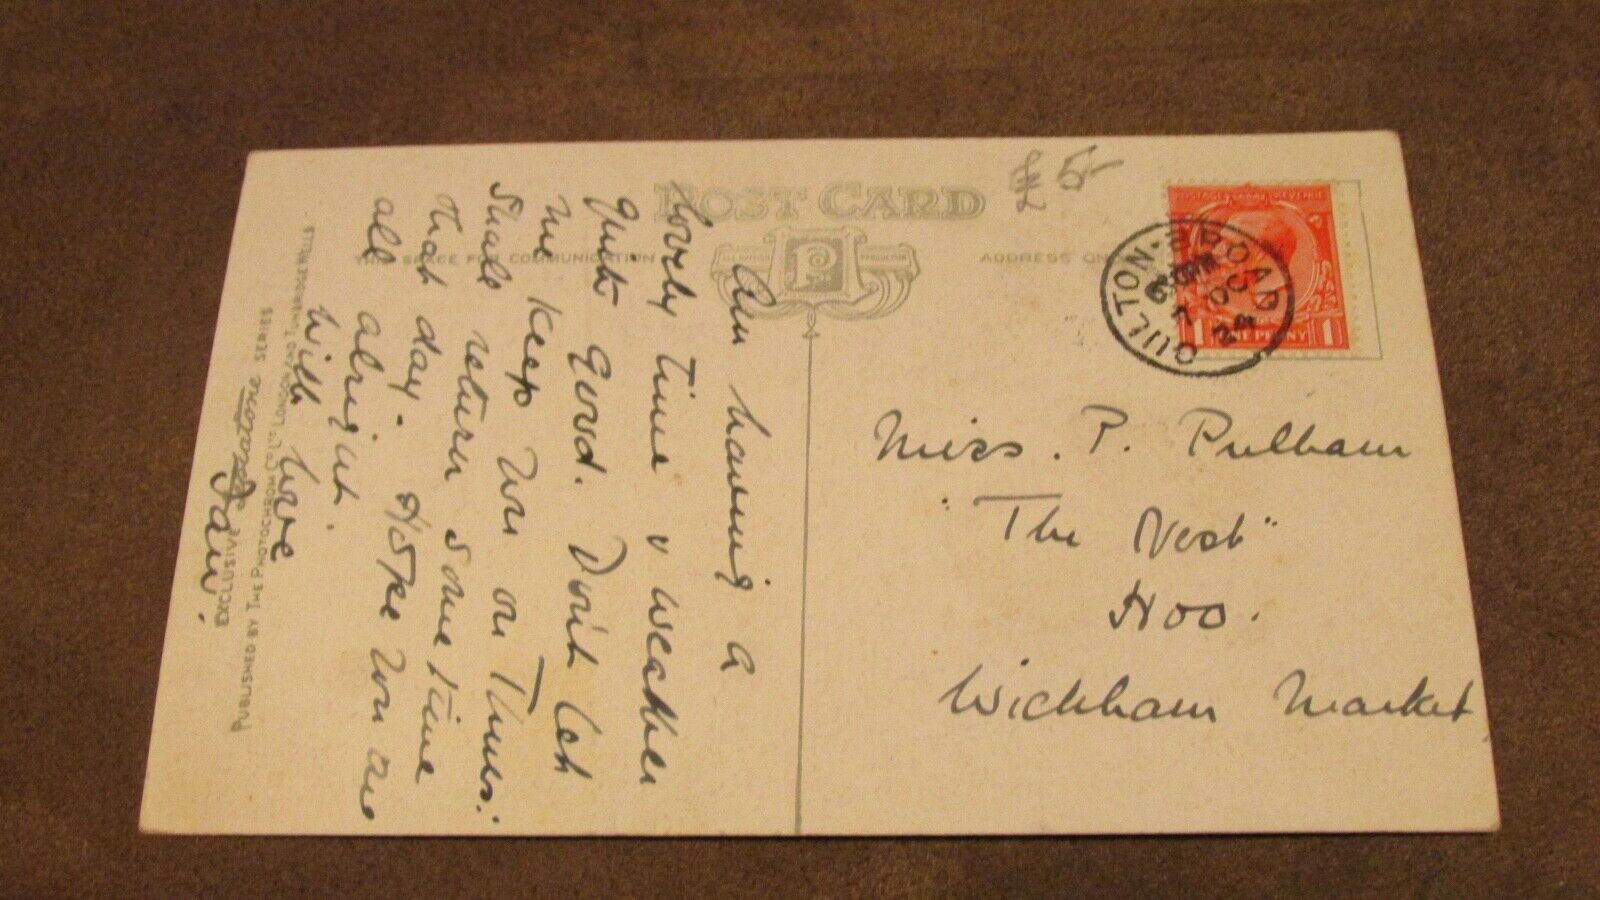 POST CARD
THIS SPACE FOR COMMUNICATION
ADDRESS ON
ALL BRITISH
PRODUCTION
P
5/-
POSTAGE REVENUE
1 ONE PENNY 1
OULTON-BROAD
7 OC
24
Am having a
lovely time & weather
quite good. Don't let
me keep you on Thurs:
shall return some time
that day. Hope you are
all alright.
With love
EXCLUSIVE SERIES
PUBLISHED BY THE PHOTOCHROM CO. LTD. LONDON AND TUNBRIDGE WELLS
Miss. P. Pulham
"The Nest"
Hoo.
Wickham Market